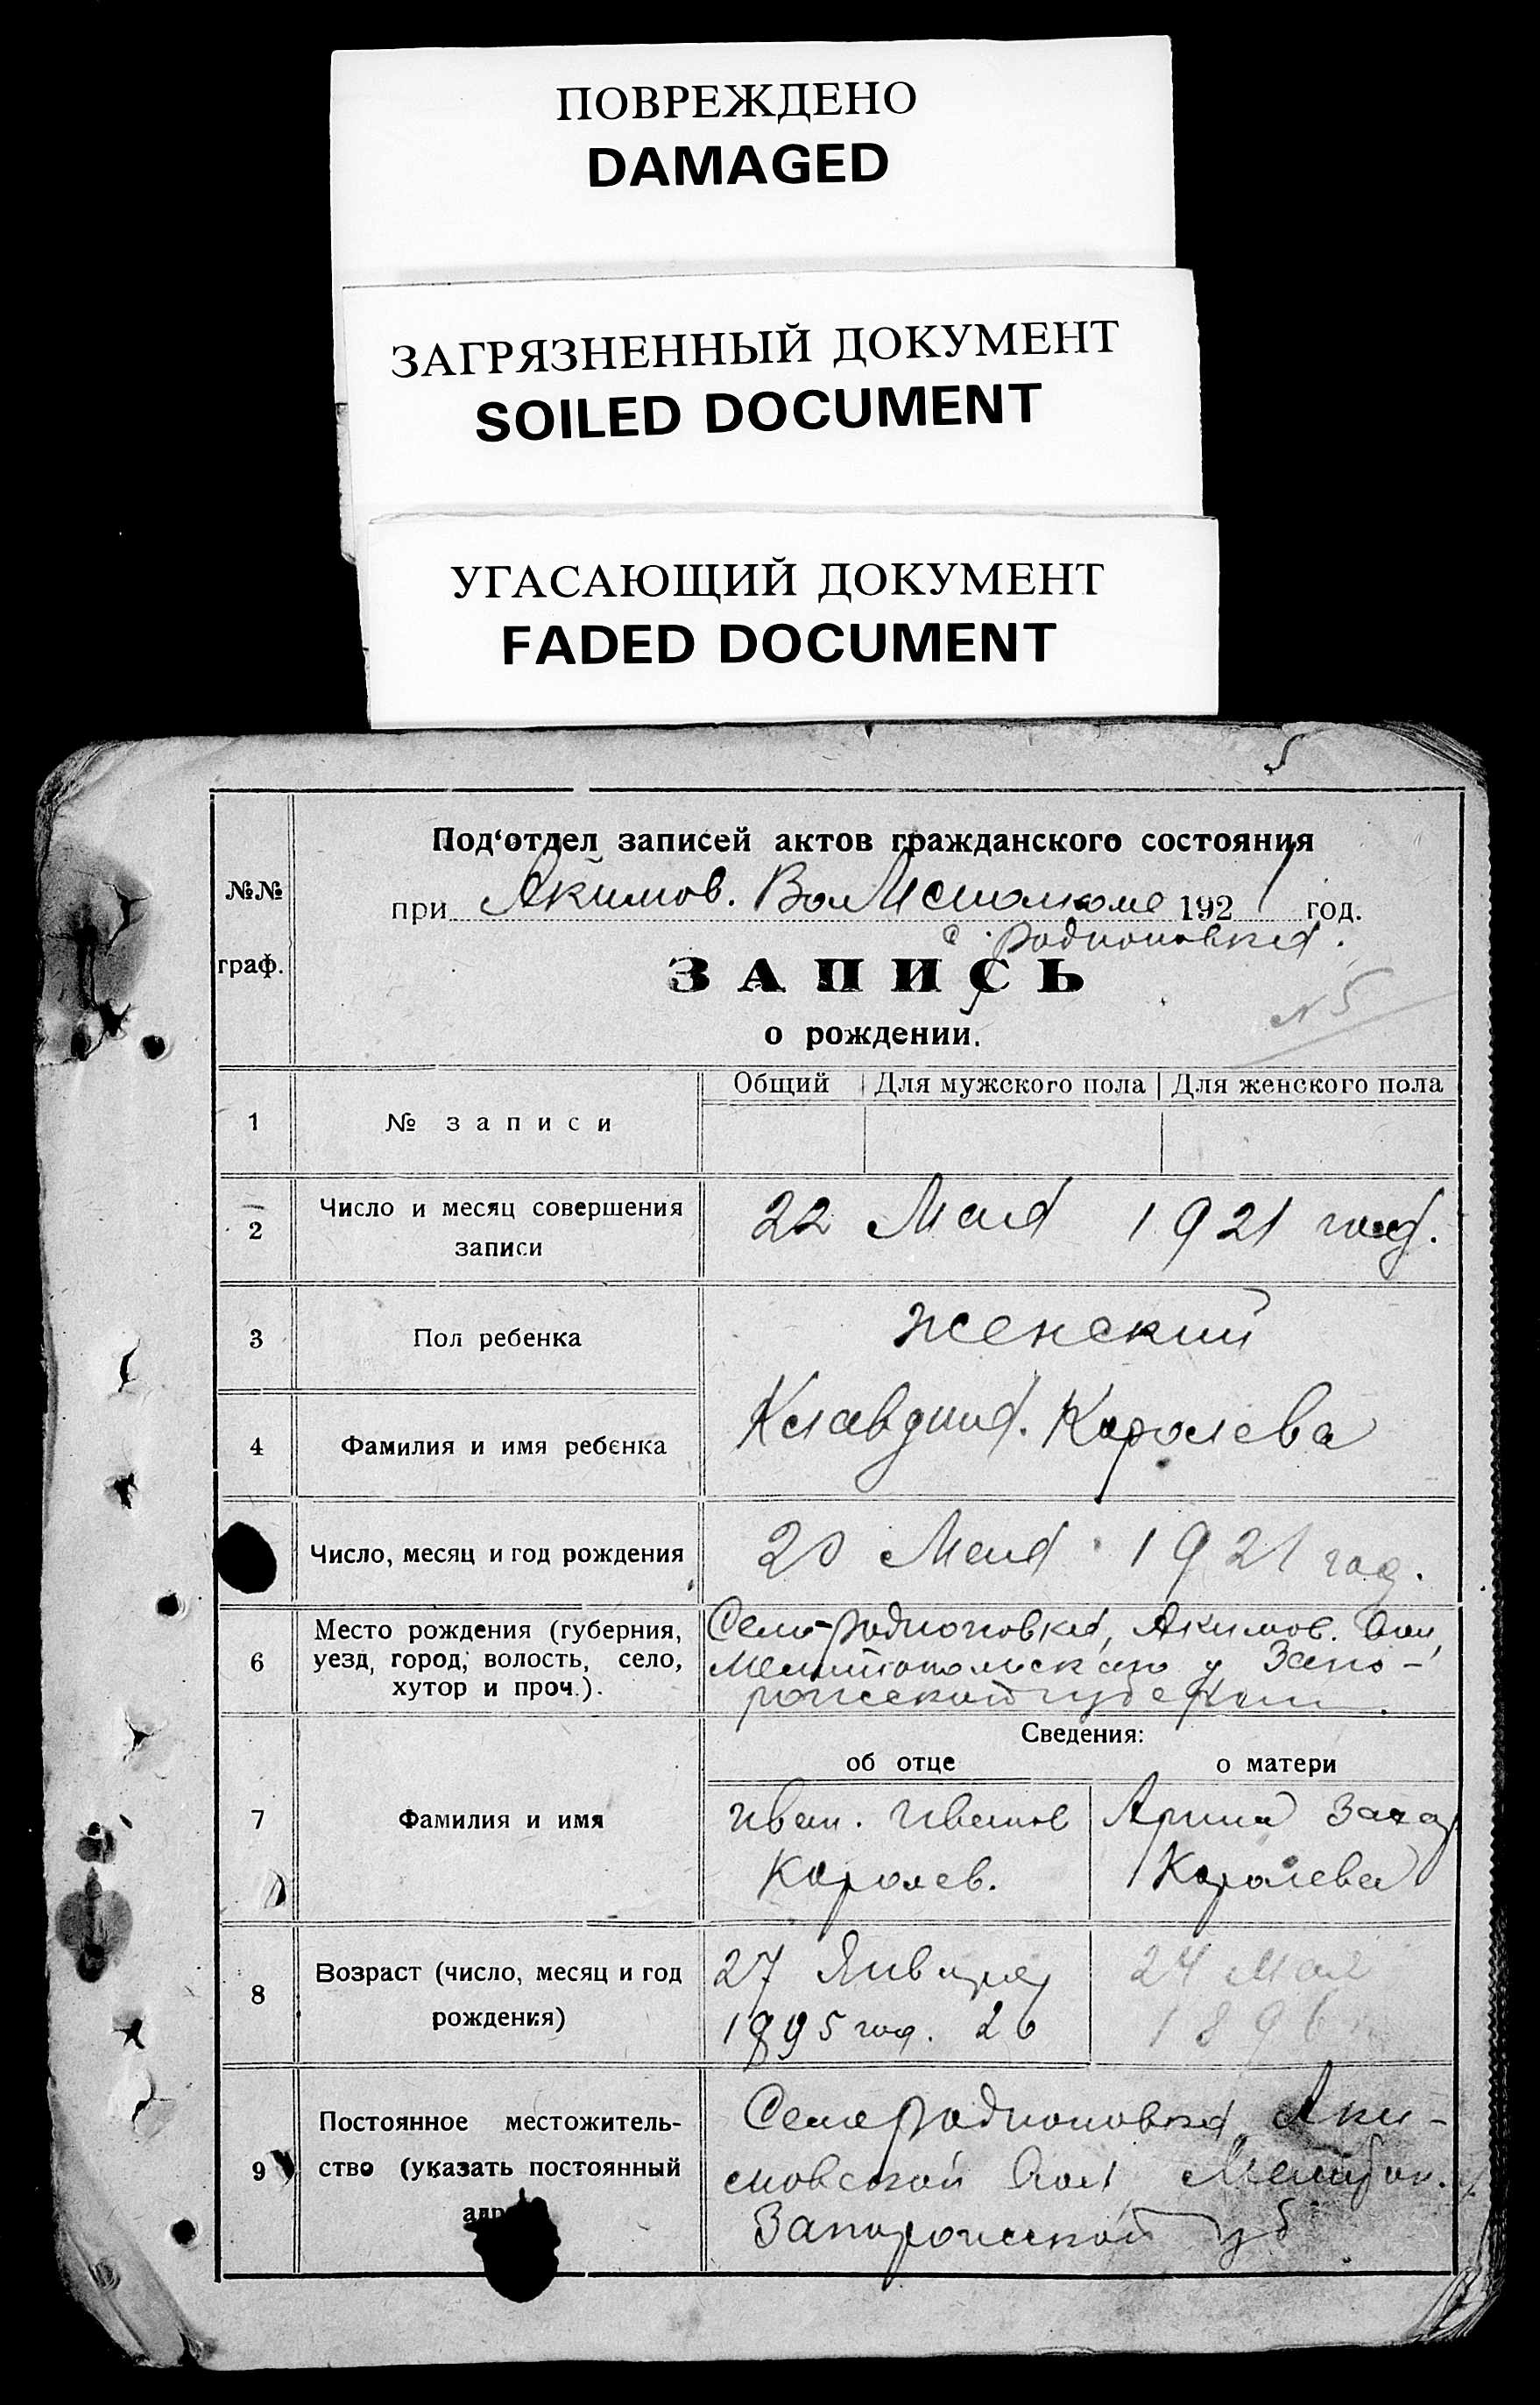 ПОВРЕЖДЕНО
DAMAGED
ЗАГРЯЗНЕННЫЙ ДОКУМЕНТ
SOILED DOCUMENT
УГАСАЮЩИЙ ДОКУМЕНТ
FADED DOCUMENT
5
№№
граф.
Под‘отдел записей актов гражданского состояния
при Акимов. ВолИсполкоме 1921 год.
с. Родионовка.
ЗАПИСЬ
N 5
о рождении.
Общий Для мужского пола Для женского пола
1 № записи
2 Число и месяц совершения
записи
22 Мая 1921 год.
3 Пол ребенка
женский
4 Фамилия и имя ребенка
Клавдия. Королева
Число, месяц и год рождения
20 Мая 1921 год.
6 Место рождения (губерния,
уезд, город, волость, село,
хутор и проч.).
Село Родионовка, Акимов. Вол,
Мелитопольского у Запо-
рожской губернии.
Сведения:
об отце о матери
7 Фамилия и имя
Иван. Иванов Арина Захар
Королев. Королева
8 Возраст (число, месяц и год
рождения)
27 Января 24 Мая
1895 год. 26 1896
9 Постоянное местожитель-
ство (указать постоянный
адр
Село Родионовка Аки-
мовской Вол Мелитоп.
Запорожской губ